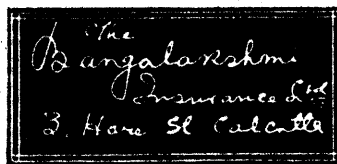 The
Bangalakshmi
Insurance Ltd
3, Hare St Calcutta